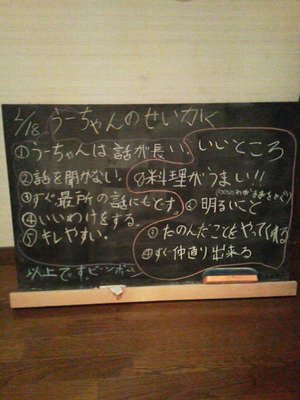 2/18 うーちゃんのせいかく
①うーちゃんは話が長い。
②話を聞かない。
③すぐ最所の話にもどす。
④いいわけをする。
⑤キレやすい。
以上です。ピンポン
いいところ
①料理がうまい!!
②明るいこと
③たのんだことをやってくれる
④すぐ仲直り出来る